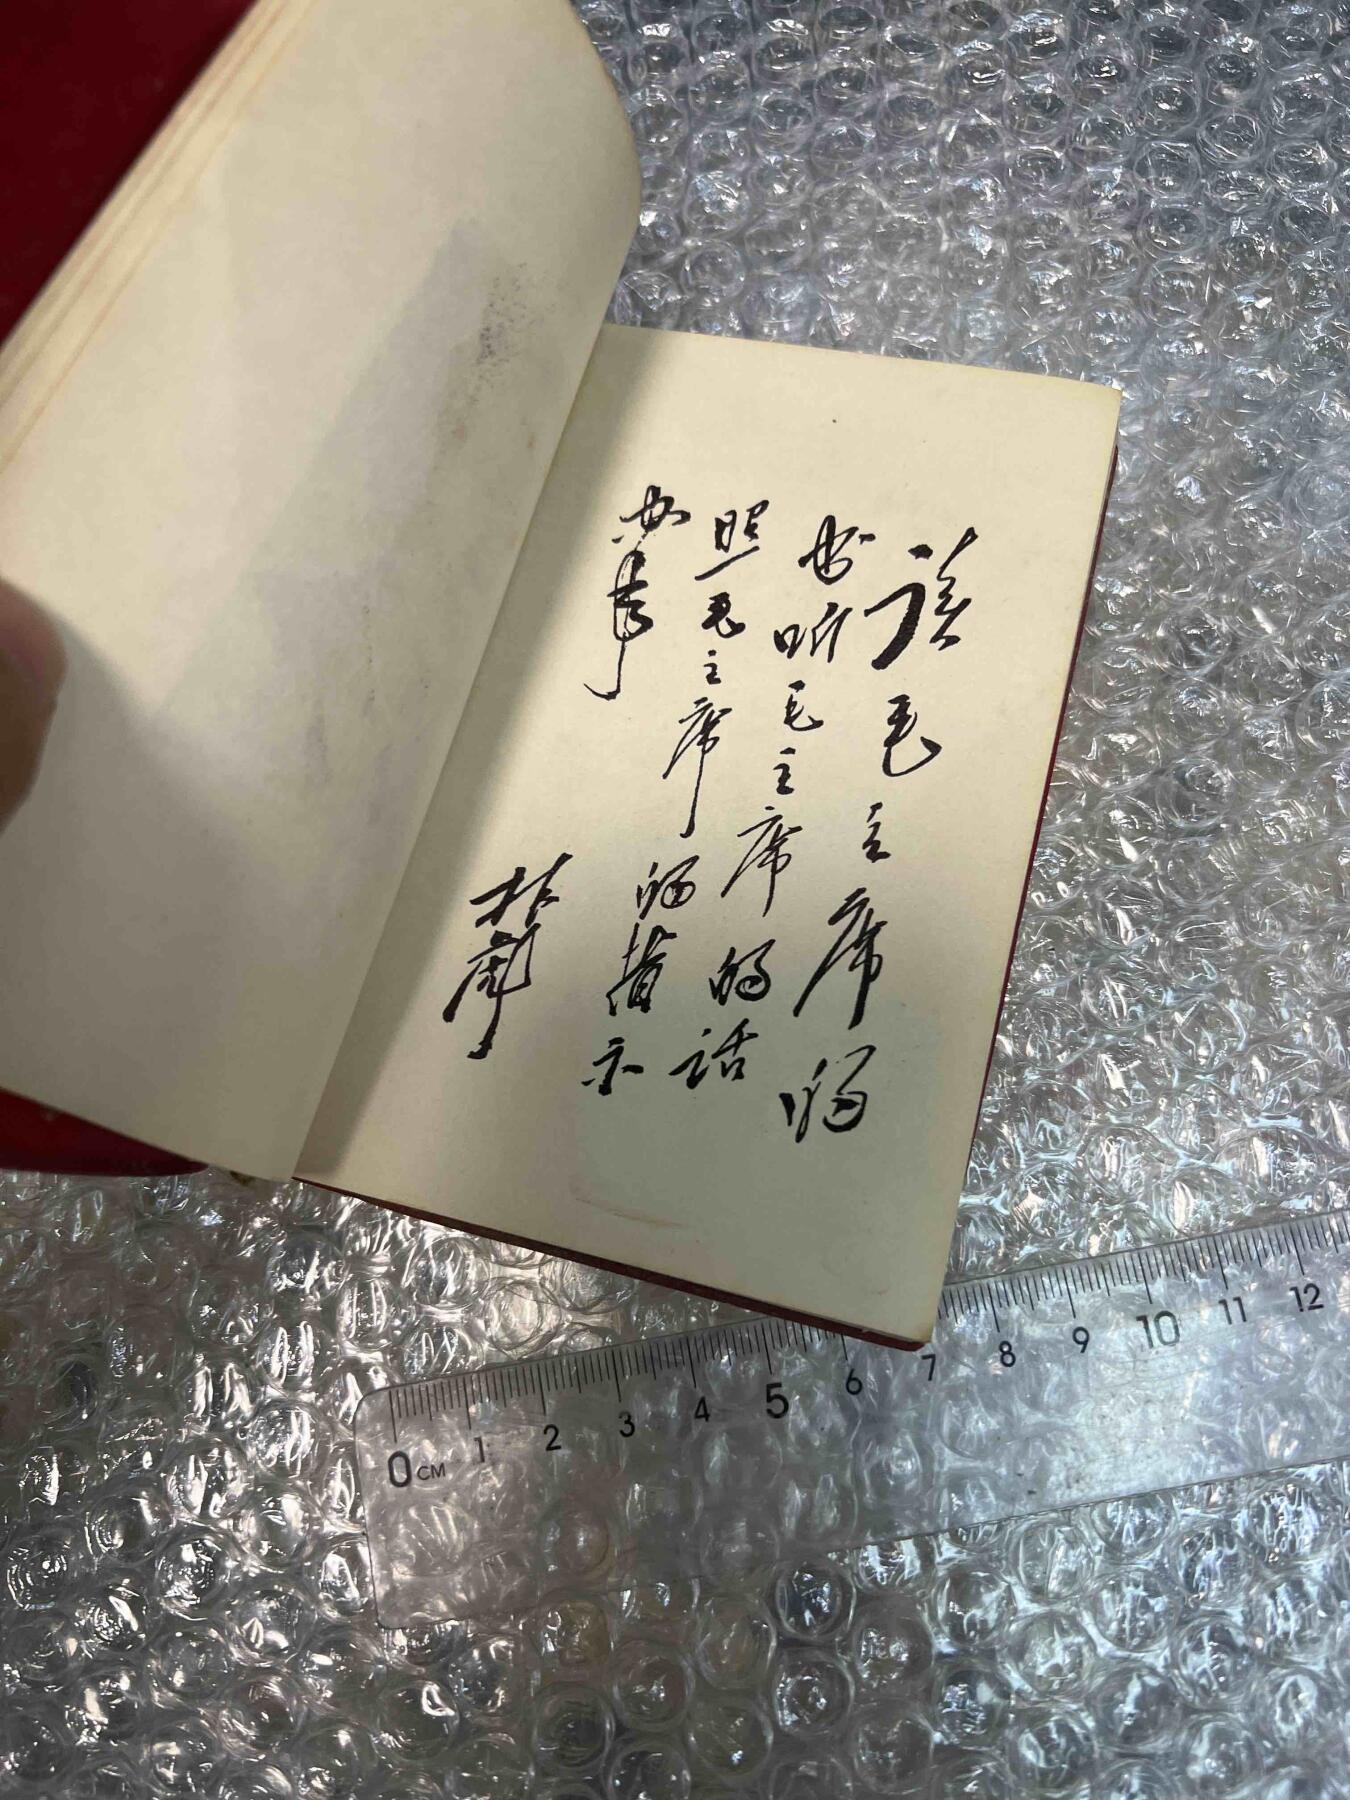 读毛主席的
书听毛主席的话
照毛主席的指示
办事
林彪
0 CM 1 2 3 4 5 6 7 8 9 10 11 12